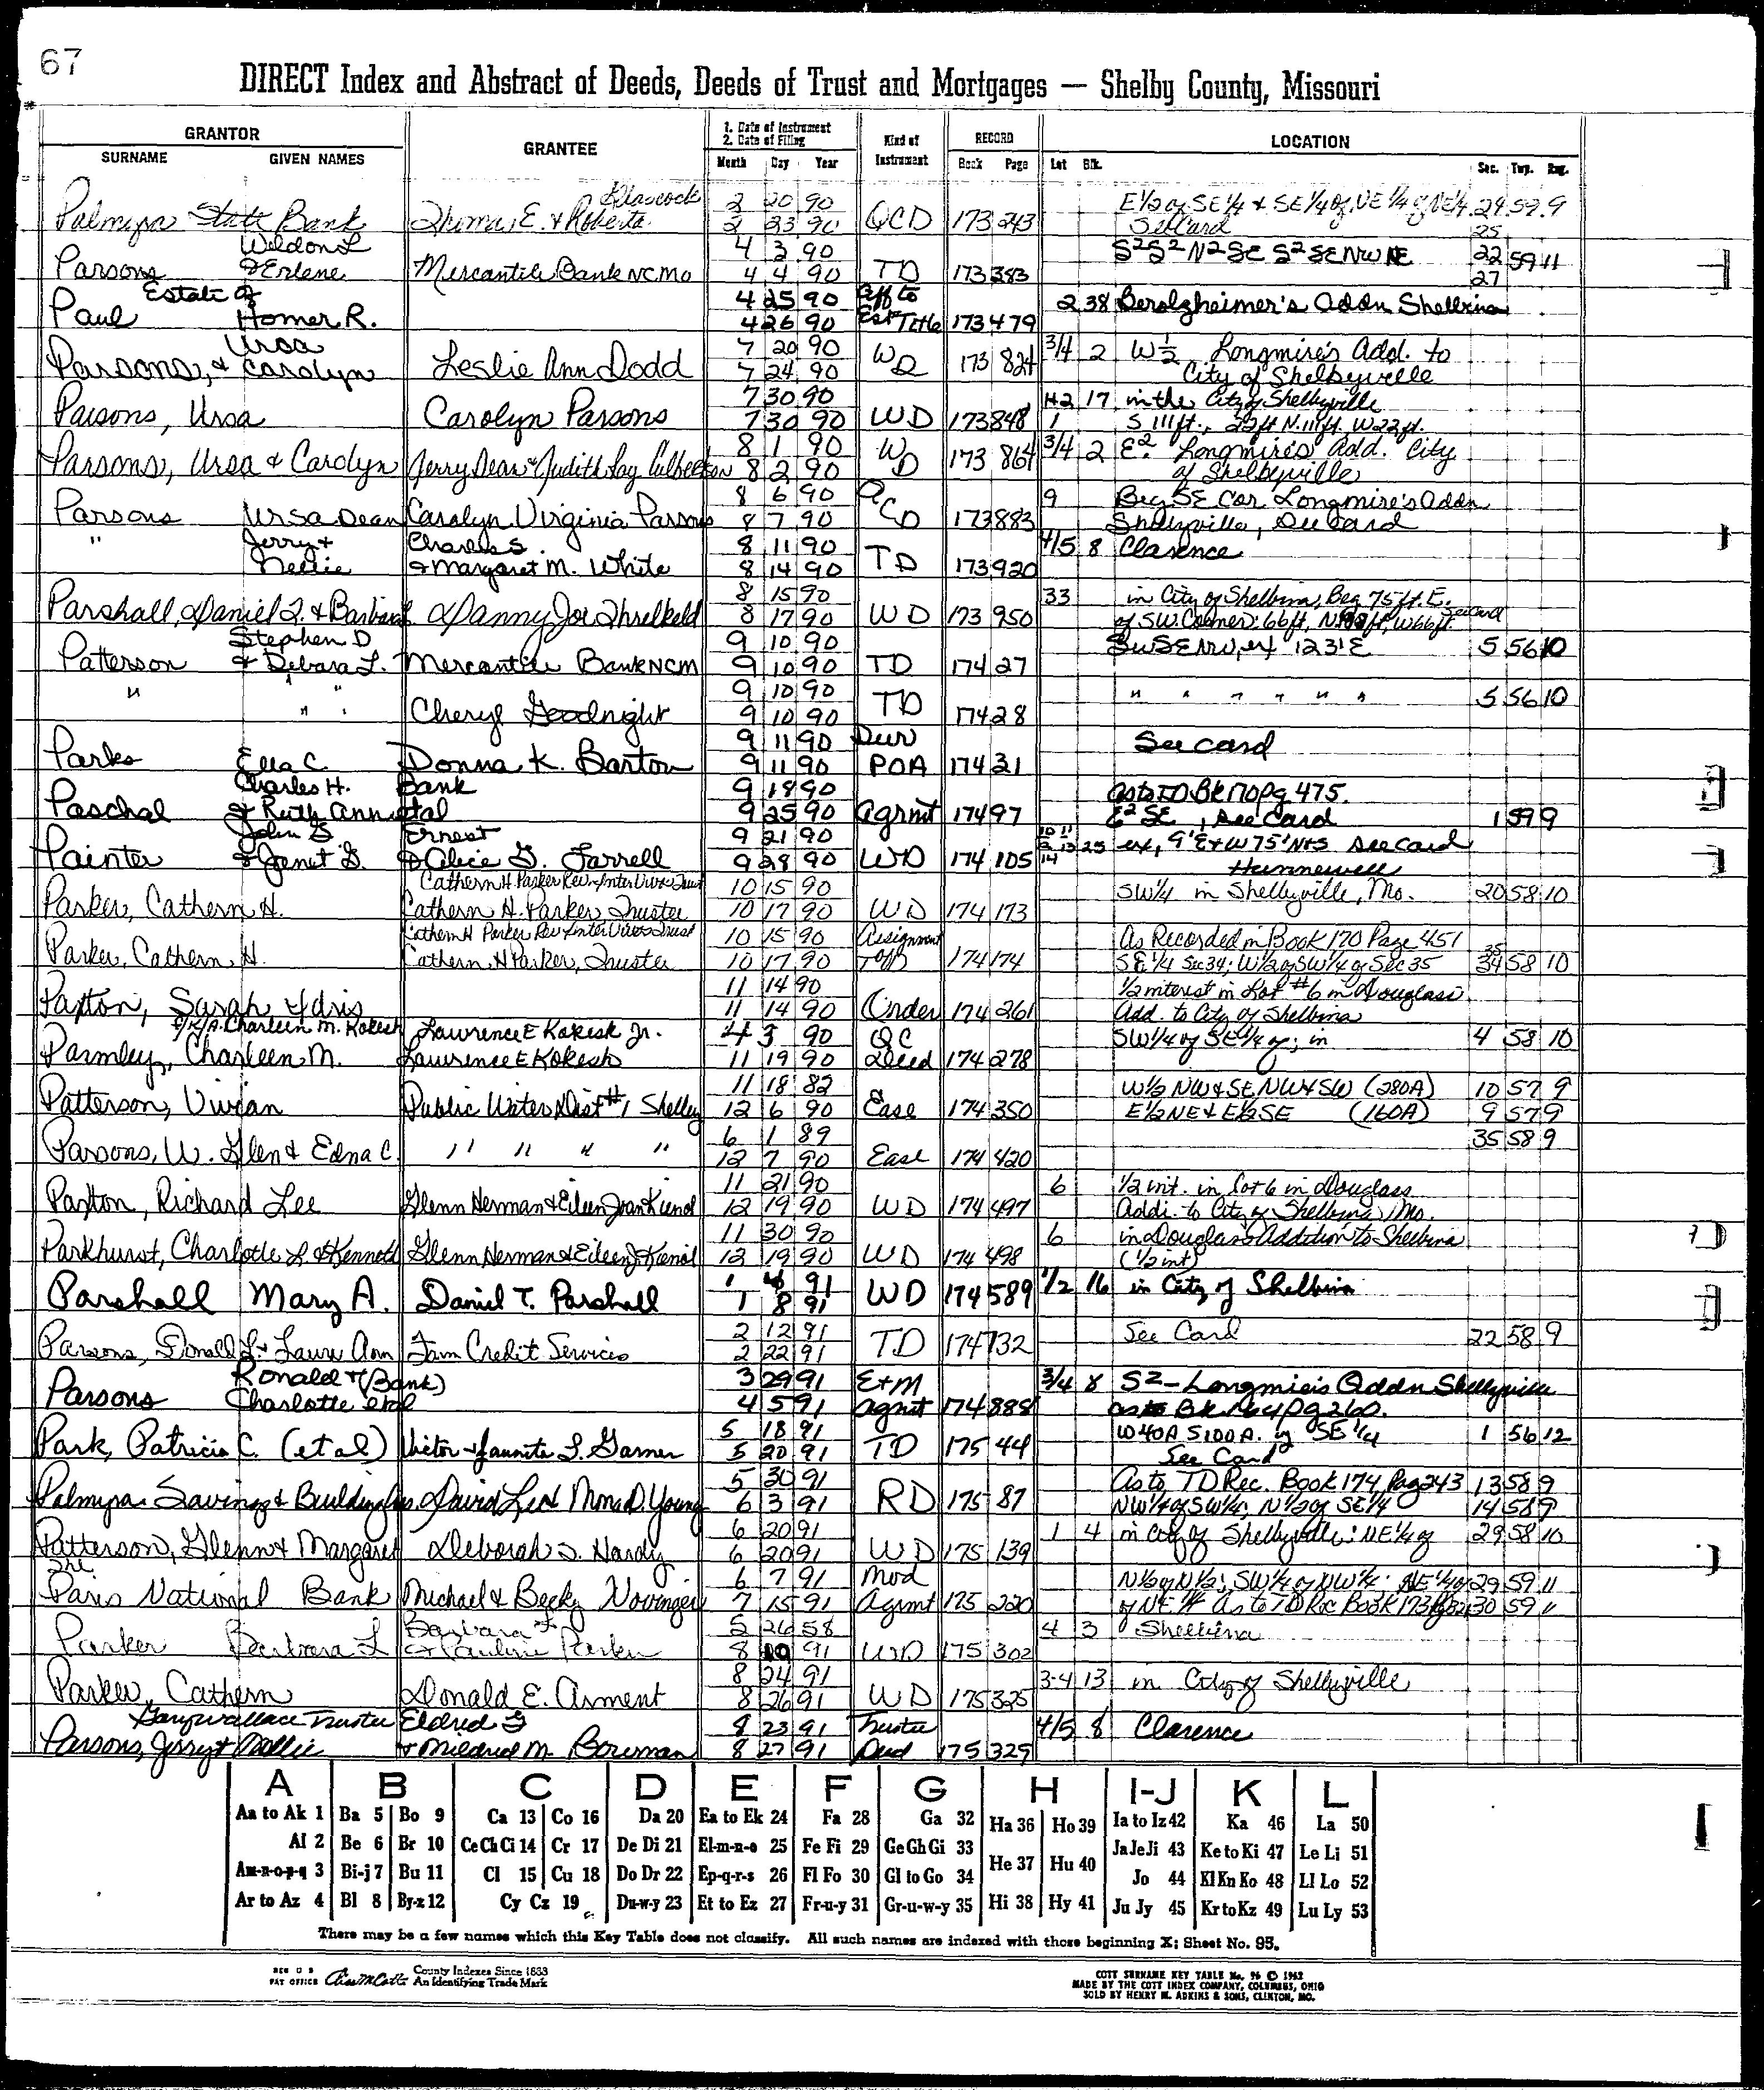 67
DIRECT Index and Abstract of Deeds, Deeds of Trust and Mortgages — Shelby County, Missouri
GRANTOR
SURNAME GIVEN NAMES
GRANTEE
1. Date of Instrument
2. Date of Filing
Month Day Year
Kind of Instrument
RECORD
Book Page
LOCATION
Lot Blk. Sec. Twp. Rng.
Palmyra State Bank Thomas E. & Roberta 2 20 90 QCD 173 243 E½ of SE¼ & SE¼ of NE¼ of NE¼ 24 59 9
2 23 90 See Card 25
Parsons Weldon L & Erlene Mercantile Bank NCMO 4 3 90 TD 173 383 S²S²N²SE S²SENWNE 22 59 11
4 4 90 27
Paul Estate of Homer R. 4 25 90 Aff to Est Title 173 479 2 38 Berolzheimer's Addn Shelbina
4 26 90
Parsons, Ursa & Carolyn Leslie Ann Dodd 7 20 90 WD 173 824 3/4 2 W½ Longmire's Add. to
7 24 90 City of Shelbyville
Parsons, Ursa Carolyn Parsons 7 30 90 WD 173 848 17 in the City of Shelbyville
7 30 90 1 S 111ft., 22ft N.111ft. W22ft.
Parsons, Ursa & Carolyn Jerry Dean & Judith Kay Culbertson 8 1 90 WD 173 864 3/4 2 E² Longmire's Add. City
8 2 90 of Shelbyville
Parsons Ursa Dean Carolyn Virginia Parsons 8 6 90 QCD 173 883 9 Beg SE Cor Longmire's Addn
8 7 90 Shelbyville, See Card
" Jerry & Nellie Charles S. & Margaret M. White 8 11 90 TD 173 920 4/5 8 Clarence
8 14 90
Parshall, Daniel T. & Barbara Danny Joe Threlkeld 8 15 90 WD 173 950 33 in City of Shelbina, Beg 75ft. E.
8 17 90 of SW Corner: 66ft, W66ft. See Card
Patterson Stephen D & Debara L. Mercantile Bank NCM 9 10 90 TD 174 27 SWSENW, ex 1231E 5 56 10
9 10 90
" " " Cheryl Goodnight 9 10 90 TD 174 28 " " " " " " 5 56 10
9 10 90
Parks Ella C. Donna K. Barton 9 11 90 Dur POA 174 31 See card
9 11 90
Paschal Charles H. & Ruth Ann Bank etal 9 18 90 Agrmt 174 97 as to TD Bk 170 pg 475.
9 25 90 E² SE, See Card 1 59 9
Painter John S & Janet G. Ernest & Alice G. Farrell 9 21 90 WD 174 105 10 11 12 13 14 25 ex, 9'E+W 75' N+S See Card
9 28 90 Hunnewell
Parker, Cathern H. Cathern H. Parker Rev Inter Vivos Trust 10 15 90 WD 174 173 SW¼ in Shelbyville, Mo. 20 58 10
Cathern H. Parker, Trustee 10 17 90
Parker, Cathern H. Cathern H Parker Rev Inter Vivos Trust 10 15 90 Assignment 174 174 As Recorded in Book 170 Page 451 35
Cathern H Parker, Trustee 10 17 90 SE¼ Sec 34; W½ of SW¼ of Sec 35 34 58 10
Paxton, Sarah Idris 11 14 90 Order 174 261 ½ interest in Lot #6 in Douglass
11 14 90 Add. to City of Shelbina
f/k/a Charleen M. Kokesh Lawrence E Kokesh Jr. 4 3 90 QC Deed 174 278 SW¼ of SE¼ of; in 4 58 10
Parmley, Charleen M. Lawrence E Kokesh 11 19 90
Patterson, Vivian Public Water Dist #1 Shelby 11 18 82 Ease 174 350 W½ NW & SE, NW & SW (280A) 10 57 9
12 6 90 E½ NE & E½ SE (160A) 9 57 9
Parsons, W. Glen & Edna C. " " " " 6 1 89 Ease 174 420 35 58 9
12 7 90
Paxton, Richard Lee Glenn Herman & Eileen Joan Kienol 11 21 90 WD 174 497 6 ½ int. in Lot 6 in Douglass
12 19 90 Addi. to City of Shelbina, Mo.
Parkhurst, Charlotte L & Kenneth Glenn Herman & Eileen J Kienol 11 30 90 WD 174 498 6 in Douglass Addition to Shelbina
12 19 90 (½ int)
Parshall Mary A. Daniel T. Parshall 1 91 WD 174 589 1/2 16 in City of Shelbina
1 8 91
Parsons, Donald L. & Laura Ann Farm Credit Services 2 12 91 TD 174 732 See Card 22 58 9
2 22 91
Parsons Ronald & Charlotte (Bank) etal 3 29 91 E+M Agmt 174 888 3/4 8 S² - Longmire's Addn Shelbyville
4 5 91 as to Bk 164 pg 260.
Park, Patricia C. (et al) Victor & Jaunita L. Garner 5 18 91 TD 175 44 W40A S100A. of SE¼ 1 56 12
5 20 91 See Card
Palmyra Savings & Building David Le & Mona D. Young 5 30 91 RD 175 87 As to TD Rec. Book 174, Pag 243 13 58 9
6 3 91 NW¼ of SW¼; N½ of SE¼ 14 58 9
Patterson, Glenn & Margaret Deborah S. Hardy 6 20 91 WD 175 139 1 4 in City of Shelbyville: NE¼ of 29 58 10
6 20 91
The Paris National Bank Michael & Becky Novinger 6 7 91 Mod Agmt 175 220 N½ of N½; SW¼ of NW¼; NE¼ of 29 59 11
7 15 91 of NE¼ As to TD Rec Book 173 30 59 11
Parker Barbara L Barbara F & Pauline Parker 5 26 58 WD 175 302 4 3 Shelbina
8 91
Parker, Cathern Donald E. Arment 8 24 91 WD 175 325 3-4 13 in City of Shelbyville
8 26 91
Gary Wallace Trustee Eldred G 8 23 91 Trustee Deed 175 329 4/5 8 Clarence
Parsons, Jerry & Nellie & Mildred M. Bowman 8 27 91
A B C D E F G H I-J K L
Aa to Ak 1 Ba 5 Bo 9 Ca 13 Co 16 Da 20 Ea to Ek 24 Fa 28 Ga 32 Ha 36 Ho 39 Ia to Iz 42 Ka 46 La 50
Al 2 Be 6 Br 10 Ce Ch Ci 14 Cr 17 De Di 21 El-m-n-o 25 Fe Fi 29 Ge Gh Gi 33 He 37 Hu 40 Ja Je Ji 43 Ke to Ki 47 Le Li 51
Am-n-o-p-q 3 Bi-j 7 Bu 11 Cl 15 Cu 18 Do Dr 22 Ep-q-r-s 26 Fl Fo 30 Gl to Go 34 Jo 44 Kl Kn Ko 48 Ll Lo 52
Ar to Az 4 Bl 8 By-z 12 Cy Cz 19 Du-w-y 23 Et to Ez 27 Fr-u-y 31 Gr-u-w-y 35 Hi 38 Hy 41 Ju Jy 45 Kr to Kz 49 Lu Ly 53
There may be a few names which this Key Table does not classify. All such names are indexed with those beginning X; Sheet No. 95.
REG U S PAT OFFICE County Indexes Since 1833
An Identifying Trade Mark
COTT SURNAME KEY TABLE No. 96 © 1962
MADE BY THE COTT INDEX COMPANY, COLUMBUS, OHIO
SOLD BY HENRY M. ADKINS & SONS, CLINTON, MO.